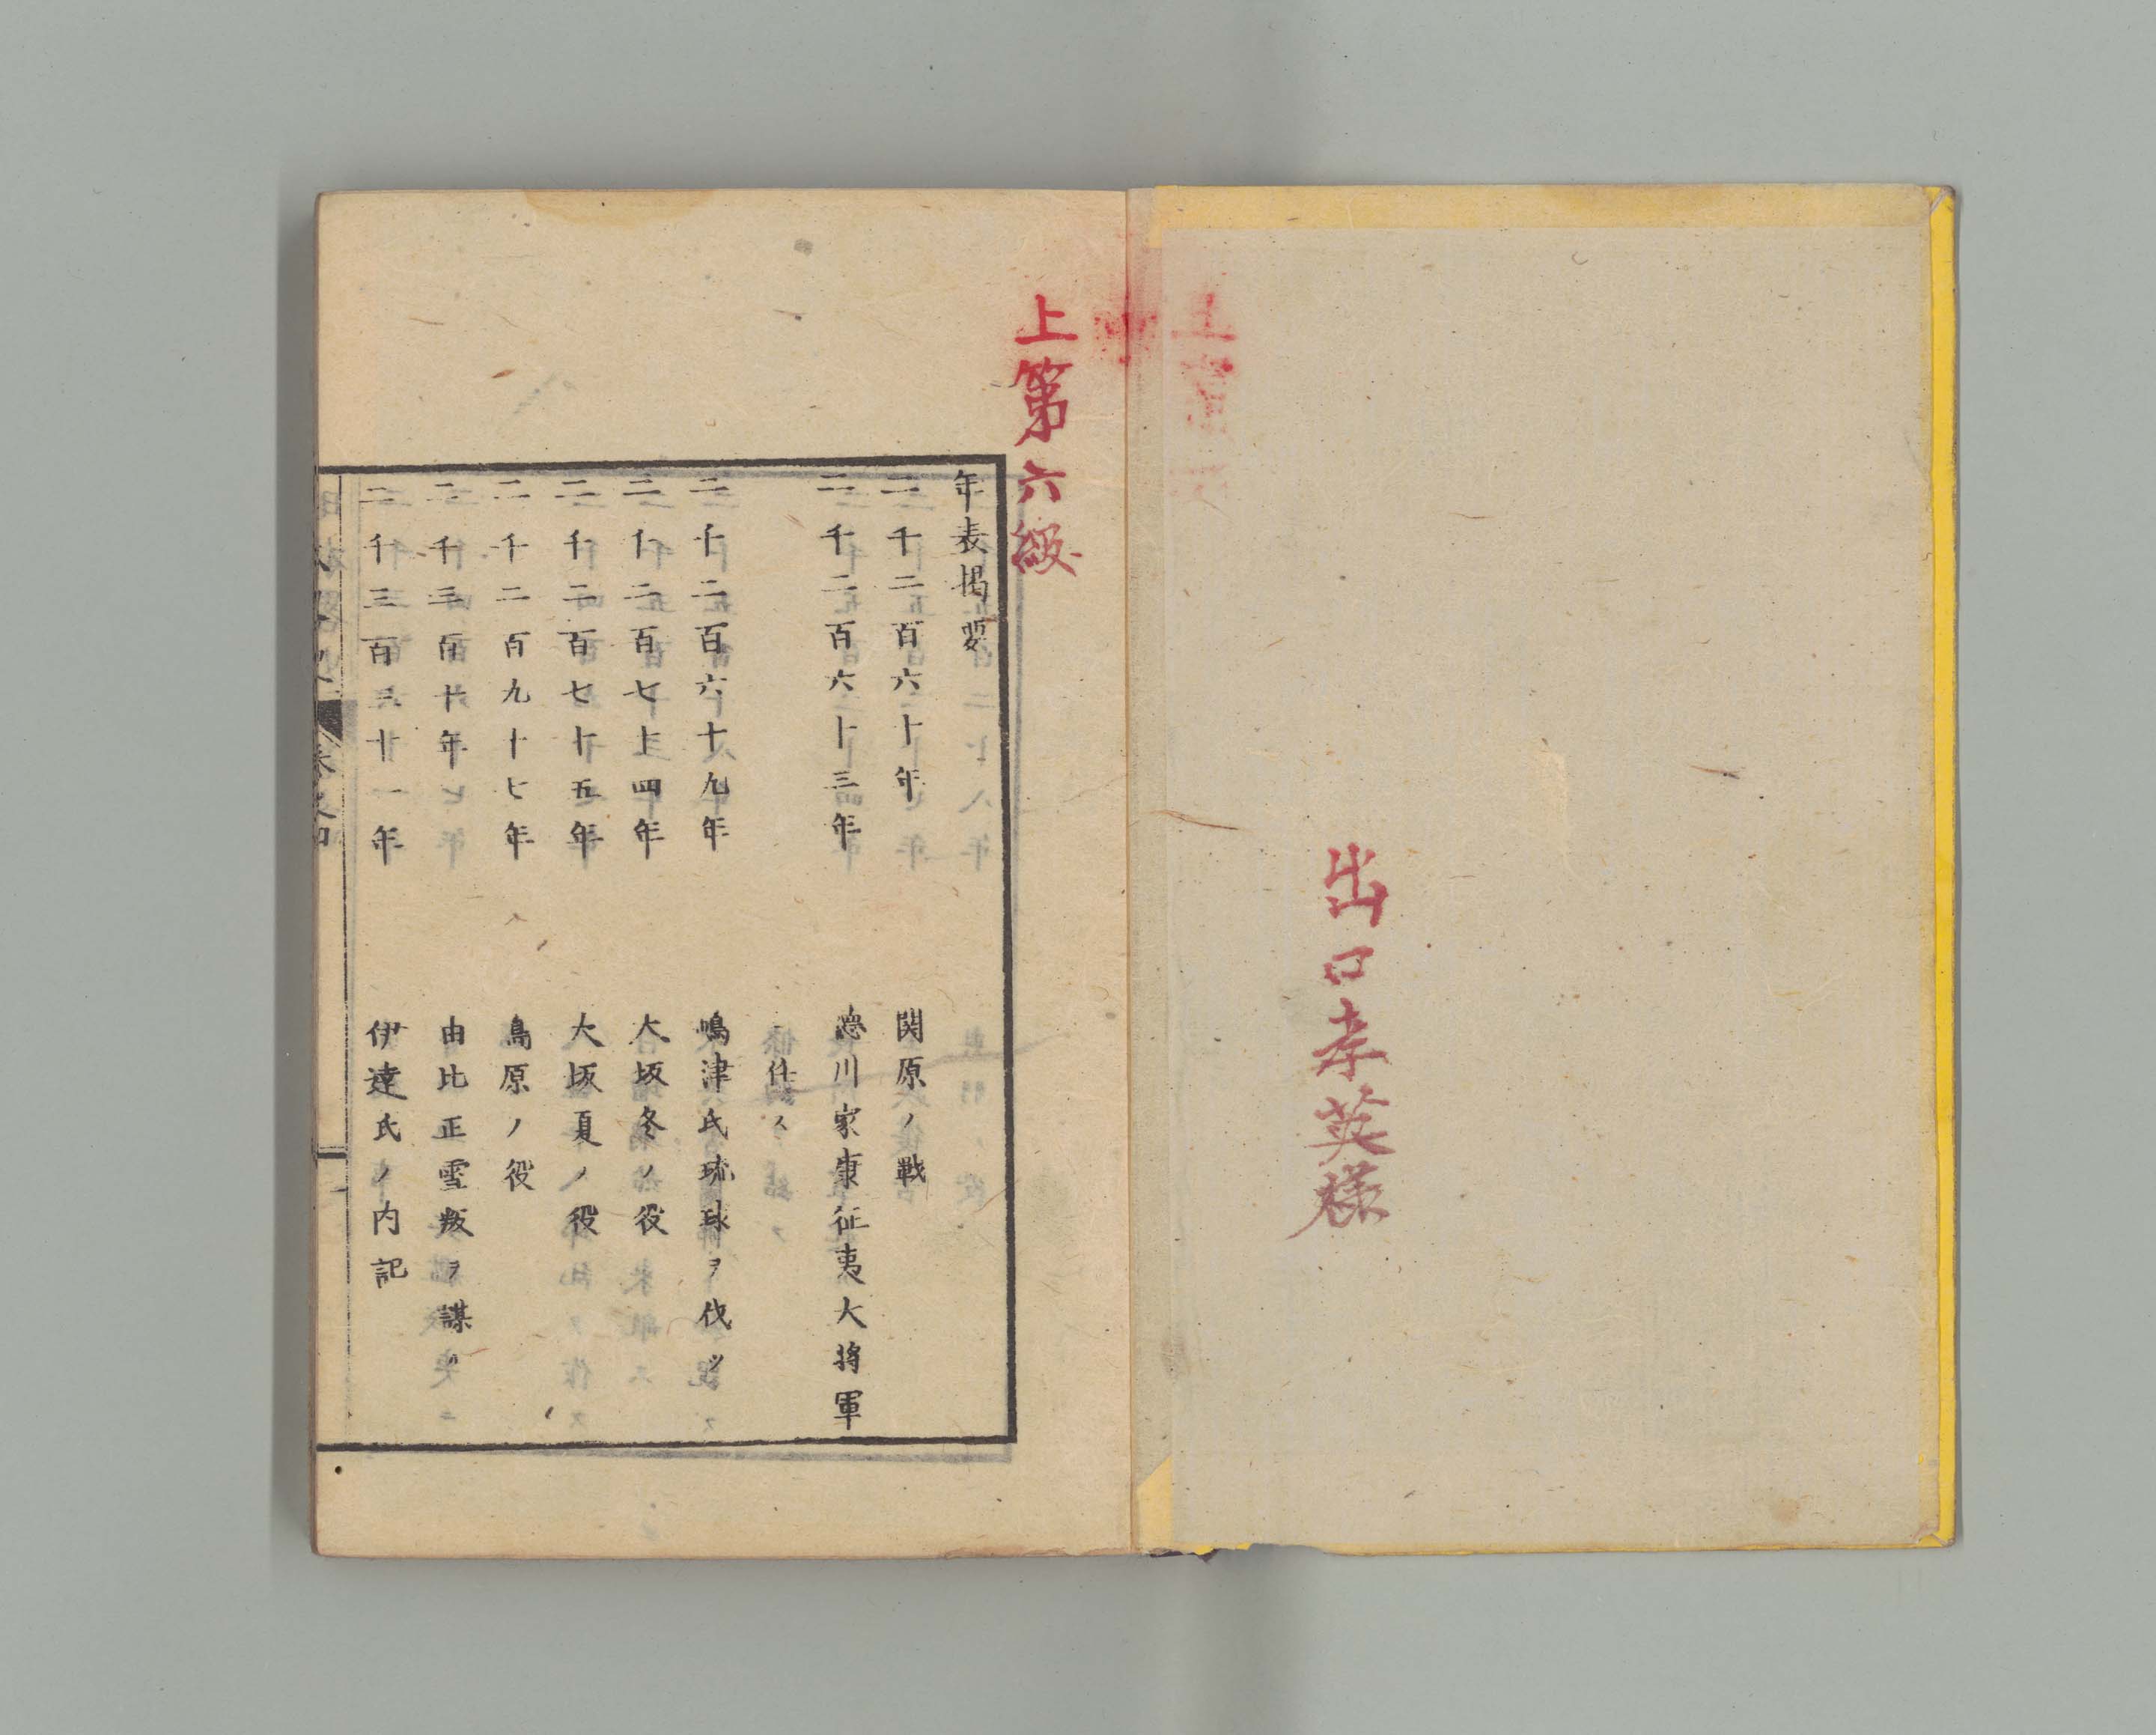 出口孝英様
上第六級
年表掲要
二千二百六十年 関原ノ戦
二千二百六十三年 徳川家康征夷大将軍
ニ任ス
二千二百六十九年 嶋津氏琉球ヲ伐ツ
二千二百七十四年 大坂冬ノ役
二千二百七十五年 大坂夏ノ役
二千二百九十七年 島原ノ役
二千三百十年 由比正雪叛ヲ謀ル
二千三百三十一年 伊達氏ノ内記